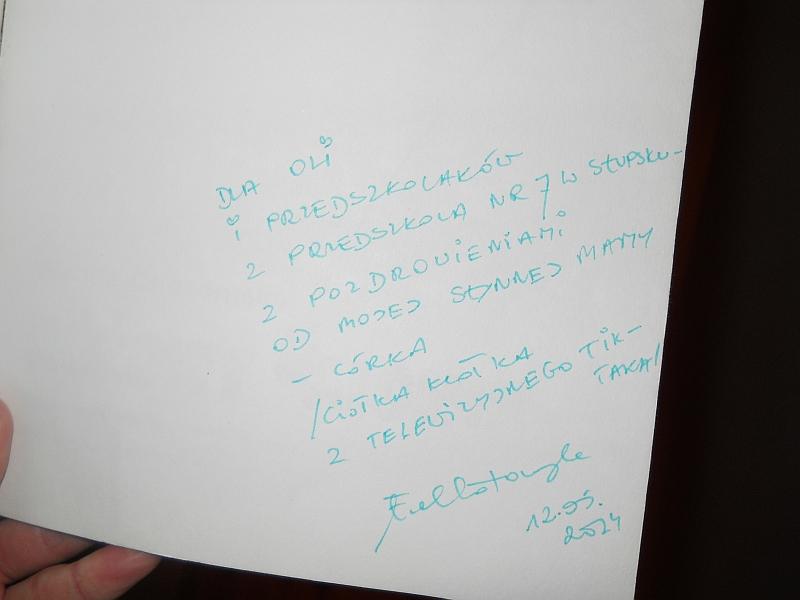 DLA OLI
i PRZEDSZKOLAKÓW
Z PRZEDSZKOLA NR 7 W SŁUPSKU -
Z POZDROWIENIAMi
OD MOJEJ SŁYNNEJ MAMY
- CÓRKA
/CIOTKA KLOTKA
Z TELEWIZYJNEGO TiK-
TAKA/
12.05.
2014